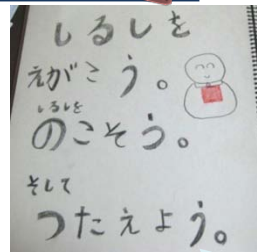 しるしを
えがこう。
しるしを
のこそう。
そして
つたえよう。